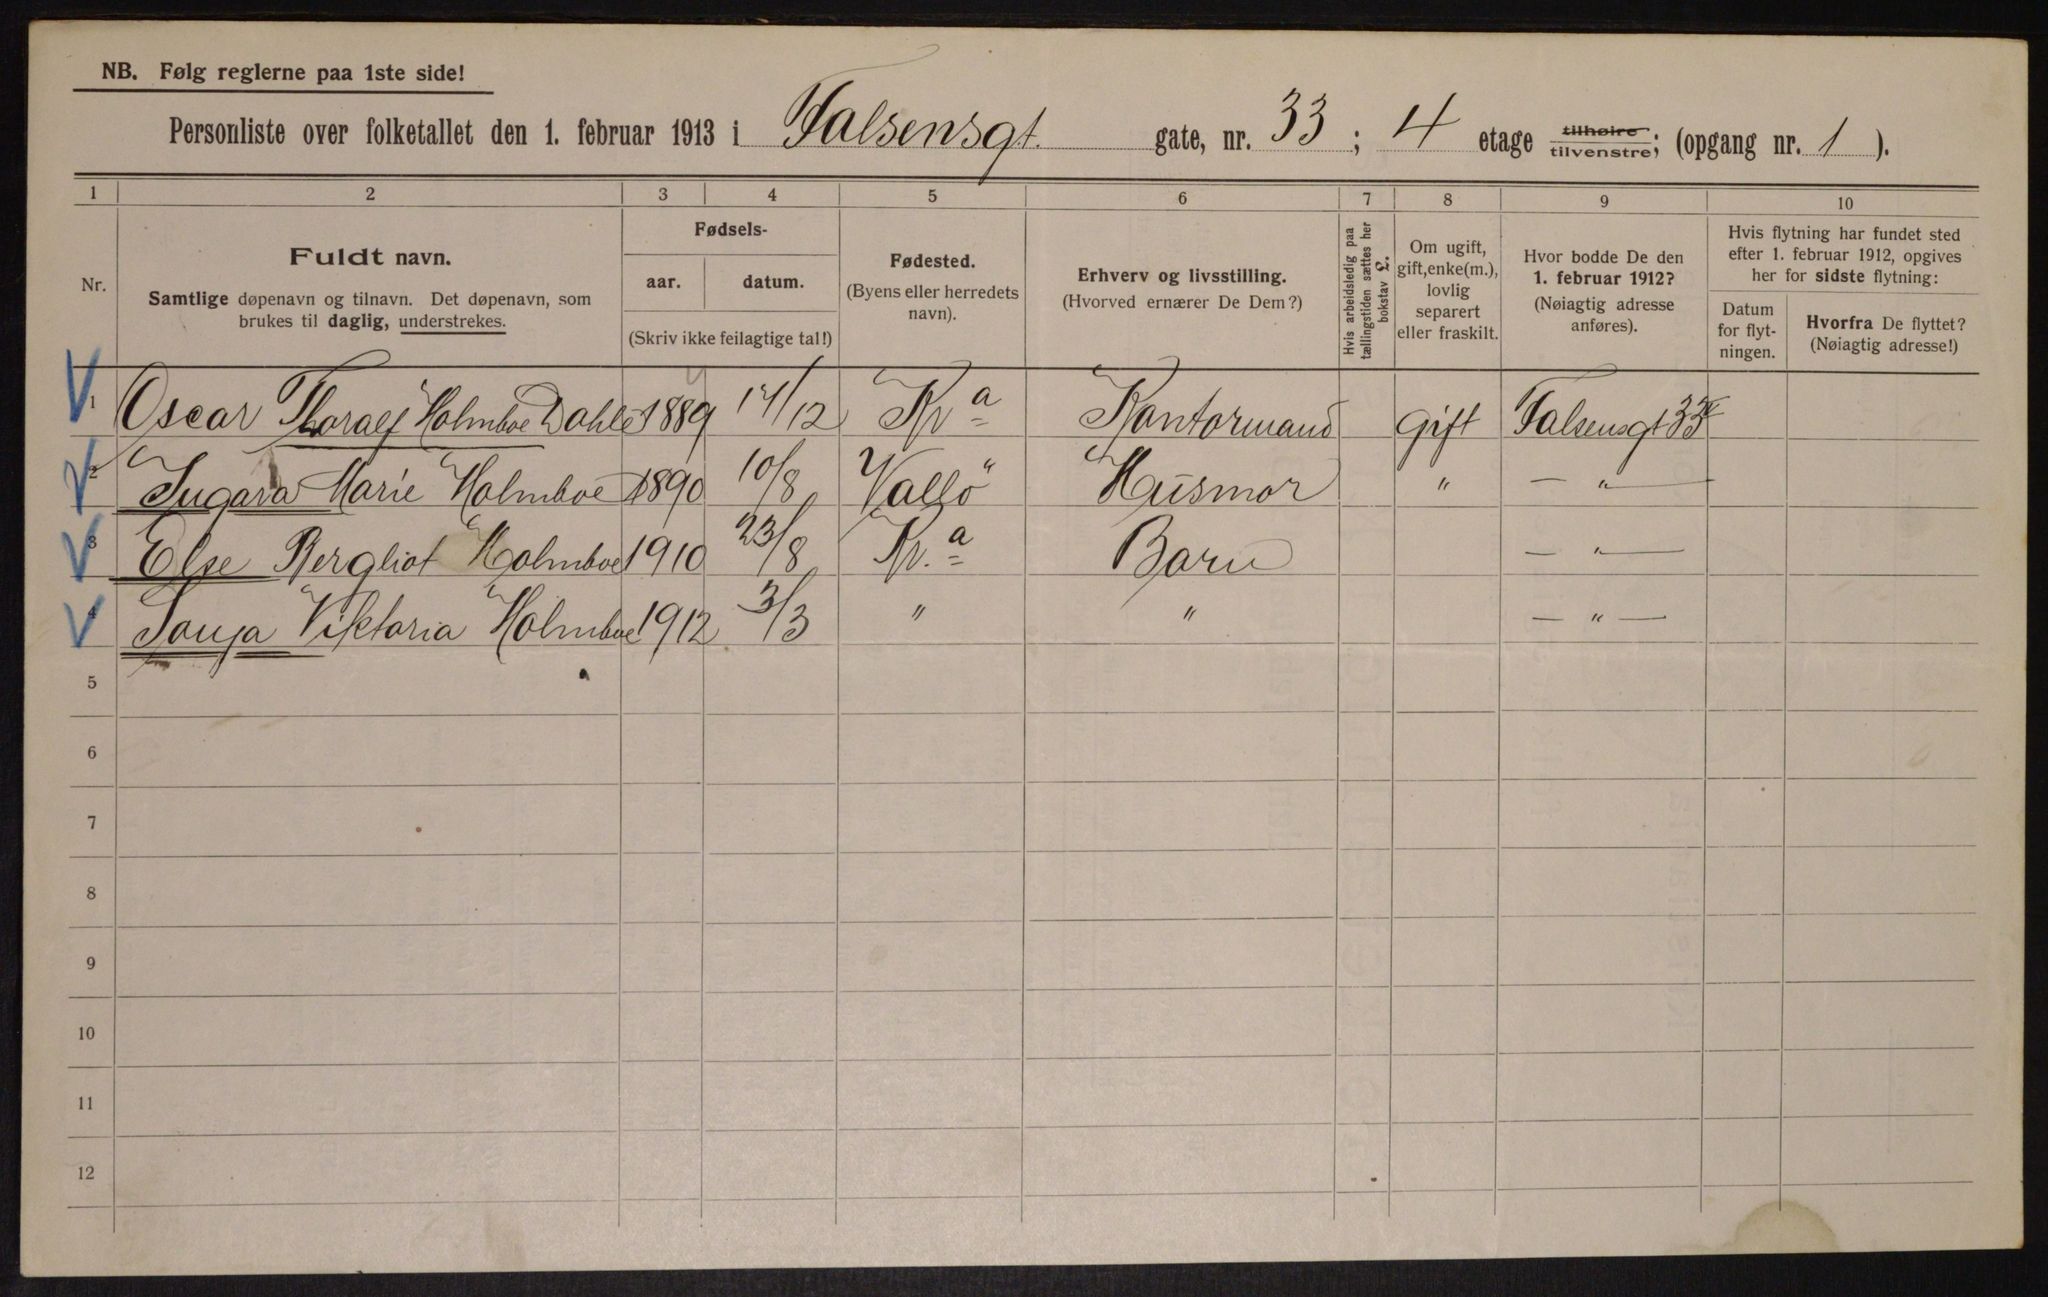 NB. Følg reglerne paa 1ste side!
Personliste over folketallet den 1. februar 1913 i Falsensgt. gate, nr. 33; 4 etage tilhøire tilvenstre; (opgang nr. 1).
1 2 3 4 5 6 7 8 9 10
Nr.
Fuldt navn.
Samtlige døpenavn og tilnavn. Det døpenavn, som
brukes til daglig, understrekes.
Fødsels-
aar. datum.
(Skriv ikke feilagtige tal!)
Fødested.
(Byens eller herredets
navn).
Erhverv og livsstilling.
(Hvorved ernærer De Dem?)
Hvis arbeidsledig paa
tællingstiden sættes her
bokstav £.
Om ugift,
gift, enke(m.),
lovlig
separert
eller fraskilt.
Hvor bodde De den
1. februar 1912?
(Nøiagtig adresse
anføres).
Hvis flytning har fundet sted
efter 1. februar 1912, opgives
her for sidste flytning:
Datum
for flyt-
ningen.
Hvorfra De flyttet?
(Nøiagtig adresse!)
1 Oscar Thoralf Holmboe Dahle 1889 14/12 Kra Kontormand gift Falsensgt 33
2 Ingara Marie Holmboe 1890 10/8 Vallö Husmor " — " —
3 Else Bergliot Holmboe 1910 23/8 Kr.a Barn — " —
4 Sonja Viktoria Holmboe 1912 3/3 " " — " —
5
6
7
8
9
10
11
12